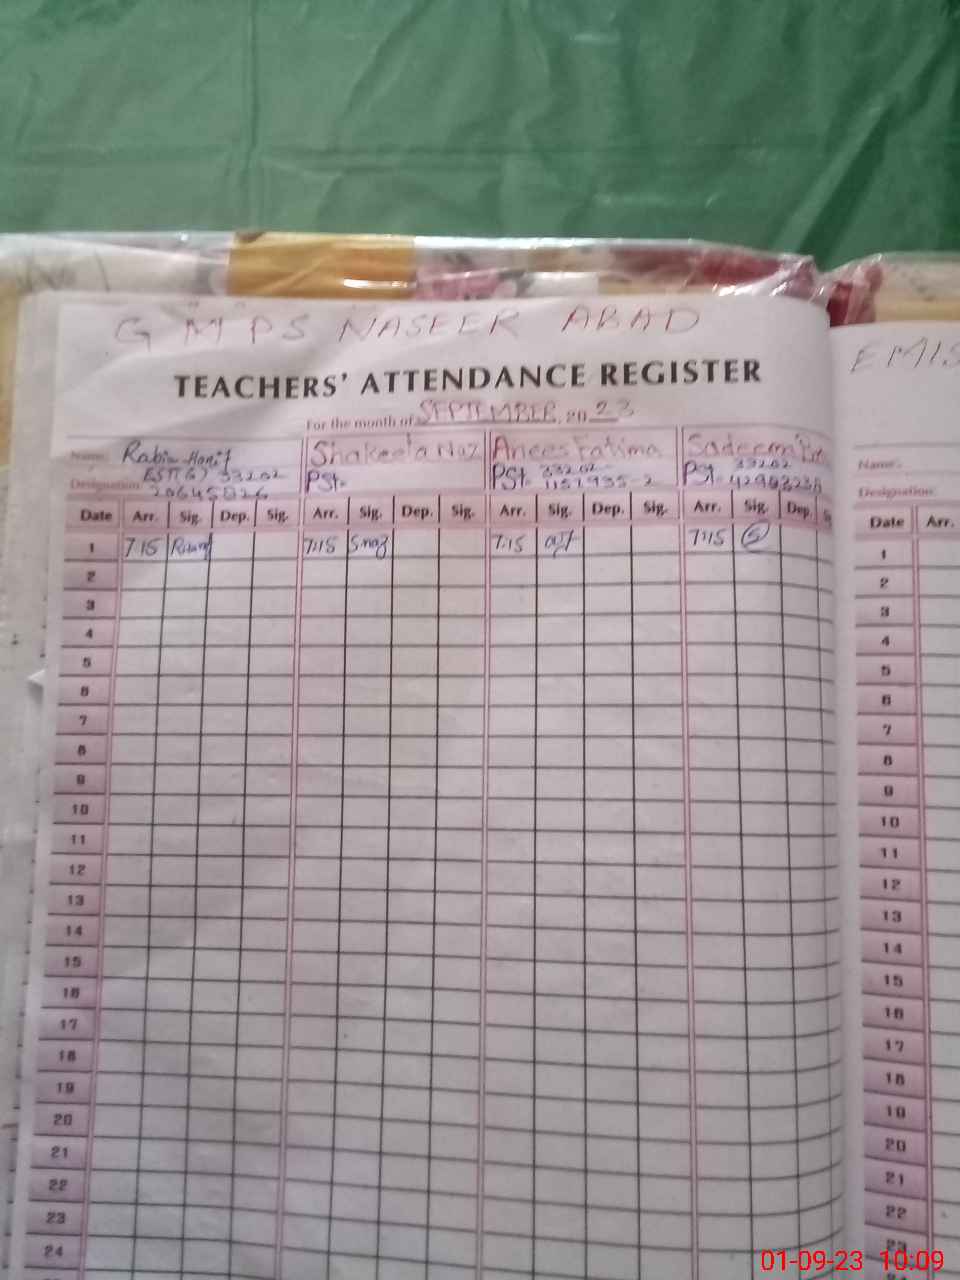 G M P S NASEER ABAD
TEACHERS' ATTENDANCE REGISTER
For the month of SEPTEMBER, 20 23
EMIS
Name: Rabia Hanif
Shakeela Naz
Anees Fatima
Sadeem
Name:
Designation: EST(G) 33202
20645826
PSt-
PSt- 33202
1151935-2
PSt- 33202
Designation:
Date Arr. Sig. Dep. Sig. Arr. Sig. Dep. Sig. Arr. Sig. Dep. Sig. Arr. Sig. Dep. S
Date Arr.
1 7:15 7:15 Snaz 7:15 7:15 S
2
3
4
5
6
7
8
9
10
11
12
13
14
15
16
17
18
19
20
21
22
23
24
1
2
3
4
5
6
7
8
9
10
11
12
13
14
15
16
17
18
19
20
21
22
23
01-09-23 10:09